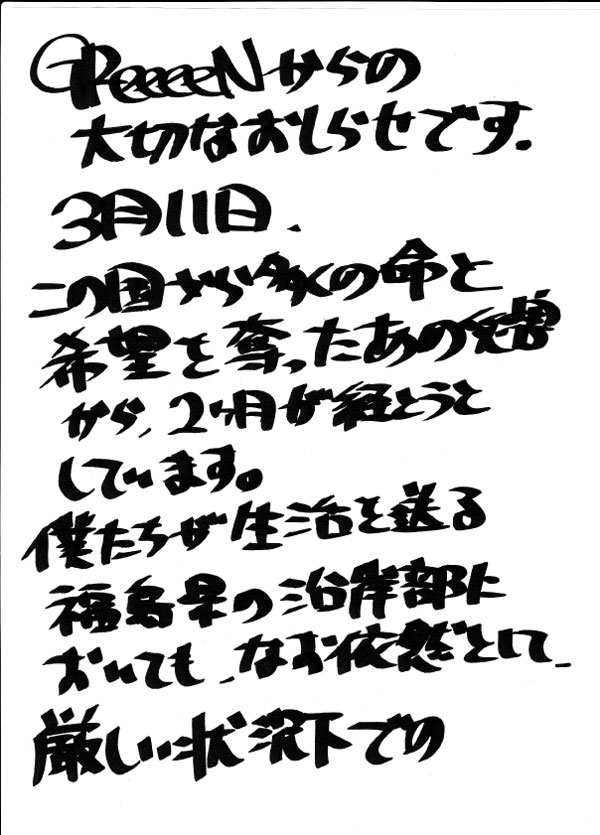 GReeeeNからの
大切なおしらせです.
3月11日、
この国から多くの命と
希望を奪ったあの災害
から、2ヶ月が経とうと
しています。
僕たちが生活を送る
福島県の沿岸部に
おいても、なお依然として、
厳しい状況下での